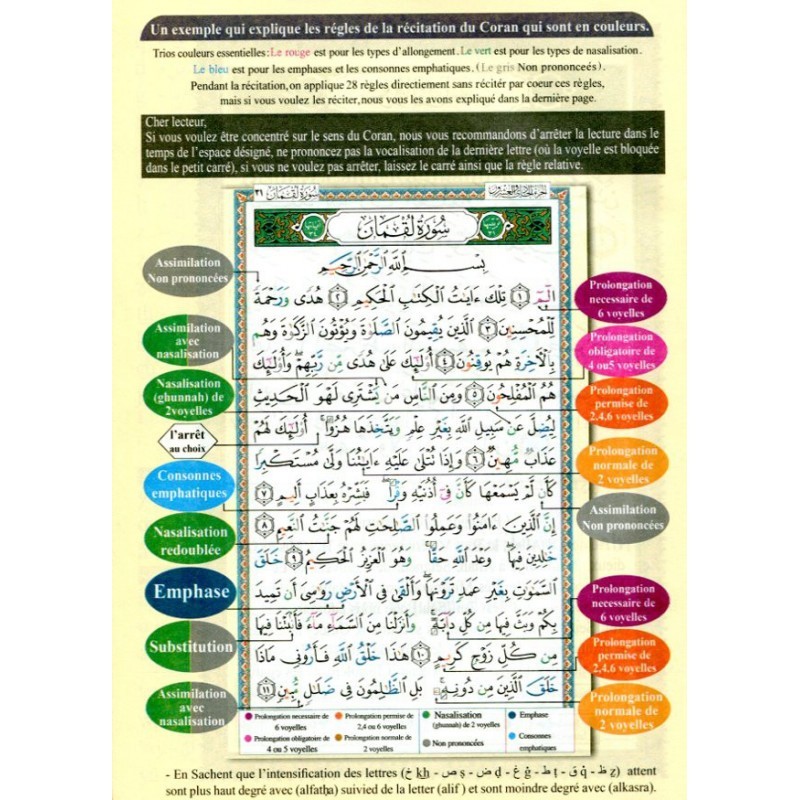 Un exemple qui explique les régles de la récitation du Coran qui sont en couleurs.
Trios couleurs essentielles:Le rouge est pour les types d'allongement.Le vert est pour les types de nasalisation.
Le bleu est pour les emphases et les consonnes emphatiques.(Le gris Non prononceés).
Pendant la récitation,on applique 28 règles directement sans récitér par coeur ces règles,
mais si vous voulez les réciter,nous vous les avons expliqué dans la dernière page.
Cher lecteur,
Si vous voulez être concentré sur le sens du Coran, nous vous recommandons d'arrêter la lecture dans le
temps de l'espace désigné, ne prononcez pas la vocalisation de la dernière lettre (où la voyelle est bloquée
dans le petit carré), si vous ne voulez pas arrêter, laissez le carré ainsi que la règle relative.
سُورَةُ لُقْمَان ٣١
سُورَةُ لُقْمَان
بِسْمِ اللَّهِ الرَّحْمَٰنِ الرَّحِيمِ
الٓمٓ ١ تِلْكَ ءَايَٰتُ الْكِتَٰبِ الْحَكِيمِ ٢ هُدًى وَرَحْمَةً
لِّلْمُحْسِنِينَ ٣ الَّذِينَ يُقِيمُونَ الصَّلَوٰةَ وَيُؤْتُونَ الزَّكَوٰةَ وَهُم
بِالْآخِرَةِ هُمْ يُوقِنُونَ ٤ أُولَٰئِكَ عَلَىٰ هُدًى مِّن رَّبِّهِمْ وَأُولَٰئِكَ
هُمُ الْمُفْلِحُونَ ٥ وَمِنَ النَّاسِ مَن يَشْتَرِى لَهْوَ الْحَدِيثِ
لِيُضِلَّ عَن سَبِيلِ اللَّهِ بِغَيْرِ عِلْمٍ وَيَتَّخِذَهَا هُزُوًا أُولَٰئِكَ لَهُمْ
عَذَابٌ مُّهِينٌ ٦ وَإِذَا تُتْلَىٰ عَلَيْهِ ءَايَٰتُنَا وَلَّىٰ مُسْتَكْبِرًا
كَأَن لَّمْ يَسْمَعْهَا كَأَنَّ فِى أُذُنَيْهِ وَقْرًا فَبَشِّرْهُ بِعَذَابٍ أَلِيمٍ ٧
إِنَّ الَّذِينَ ءَامَنُوا وَعَمِلُوا الصَّٰلِحَٰتِ لَهُمْ جَنَّٰتُ النَّعِيمِ ٨
خَٰلِدِينَ فِيهَا وَعْدَ اللَّهِ حَقًّا وَهُوَ الْعَزِيزُ الْحَكِيمُ ٩ خَلَقَ
السَّمَٰوَٰتِ بِغَيْرِ عَمَدٍ تَرَوْنَهَا وَأَلْقَىٰ فِى الْأَرْضِ رَوَٰسِىَ أَن تَمِيدَ
بِكُمْ وَبَثَّ فِيهَا مِن كُلِّ دَابَّةٍ وَأَنزَلْنَا مِنَ السَّمَاءِ مَاءً فَأَنبَتْنَا فِيهَا
مِن كُلِّ زَوْجٍ كَرِيمٍ ١٠ هَٰذَا خَلْقُ اللَّهِ فَأَرُونِى مَاذَا
خَلَقَ الَّذِينَ مِن دُونِهِ بَلِ الظَّٰلِمُونَ فِى ضَلَٰلٍ مُّبِينٍ ١١
Assimilation
Non prononcées
Assimilation
avec
nasalisation
Nasalisation
(ghunnah) de
2voyelles
l'arrêt
au choix
Consonnes
emphatiques
Nasalisation
redoublée
Emphase
Substitution
Assimilation
avec
nasalisation
Prolongation
necessaire de
6 voyelles
Prolongation
obligatoire de
4 ou5 voyelles
Prolongation
permise de
2,4,6 voyelles
Prolongation
normale de
2 voyelles
Assimilation
Non prononcées
Prolongation
necessaire de
6 voyelles
Prolongation
permise de
2,4,6 voyelles
Prolongation
normale de
2 voyelles
Prolongation necessaire de
6 voyelles
Prolongation obligatoire de
4 ou 5 voyelles
Prolongation permise de
2,4 ou 6 voyelles
Prolongation normale de
2 voyelles
Nasalisation
(ghunnah) de 2 voyelles
Non prononcées
Emphase
Consonnes
emphatiques
- En Sachent que l'intensification des lettres (خ kh - ص ṣ - ض ḍ - غ ġ - ط ṭ - ق q - ظ ẓ) attent
sont plus haut degré avec (alfatḥa) suivied de la letter (alif ) et sont moindre degré avec (alkasra).